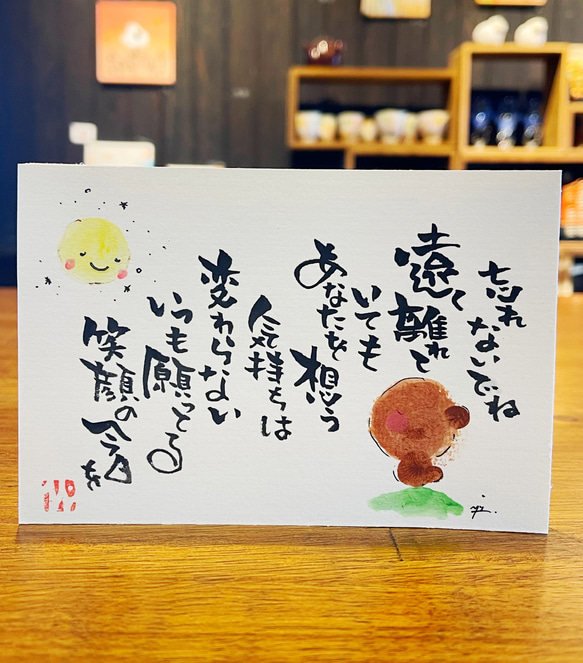 忘れ
ないでね
遠く離れて
いても
あなたを想う
気持ちは
変わらない
いつも願ってる
笑顔の今を